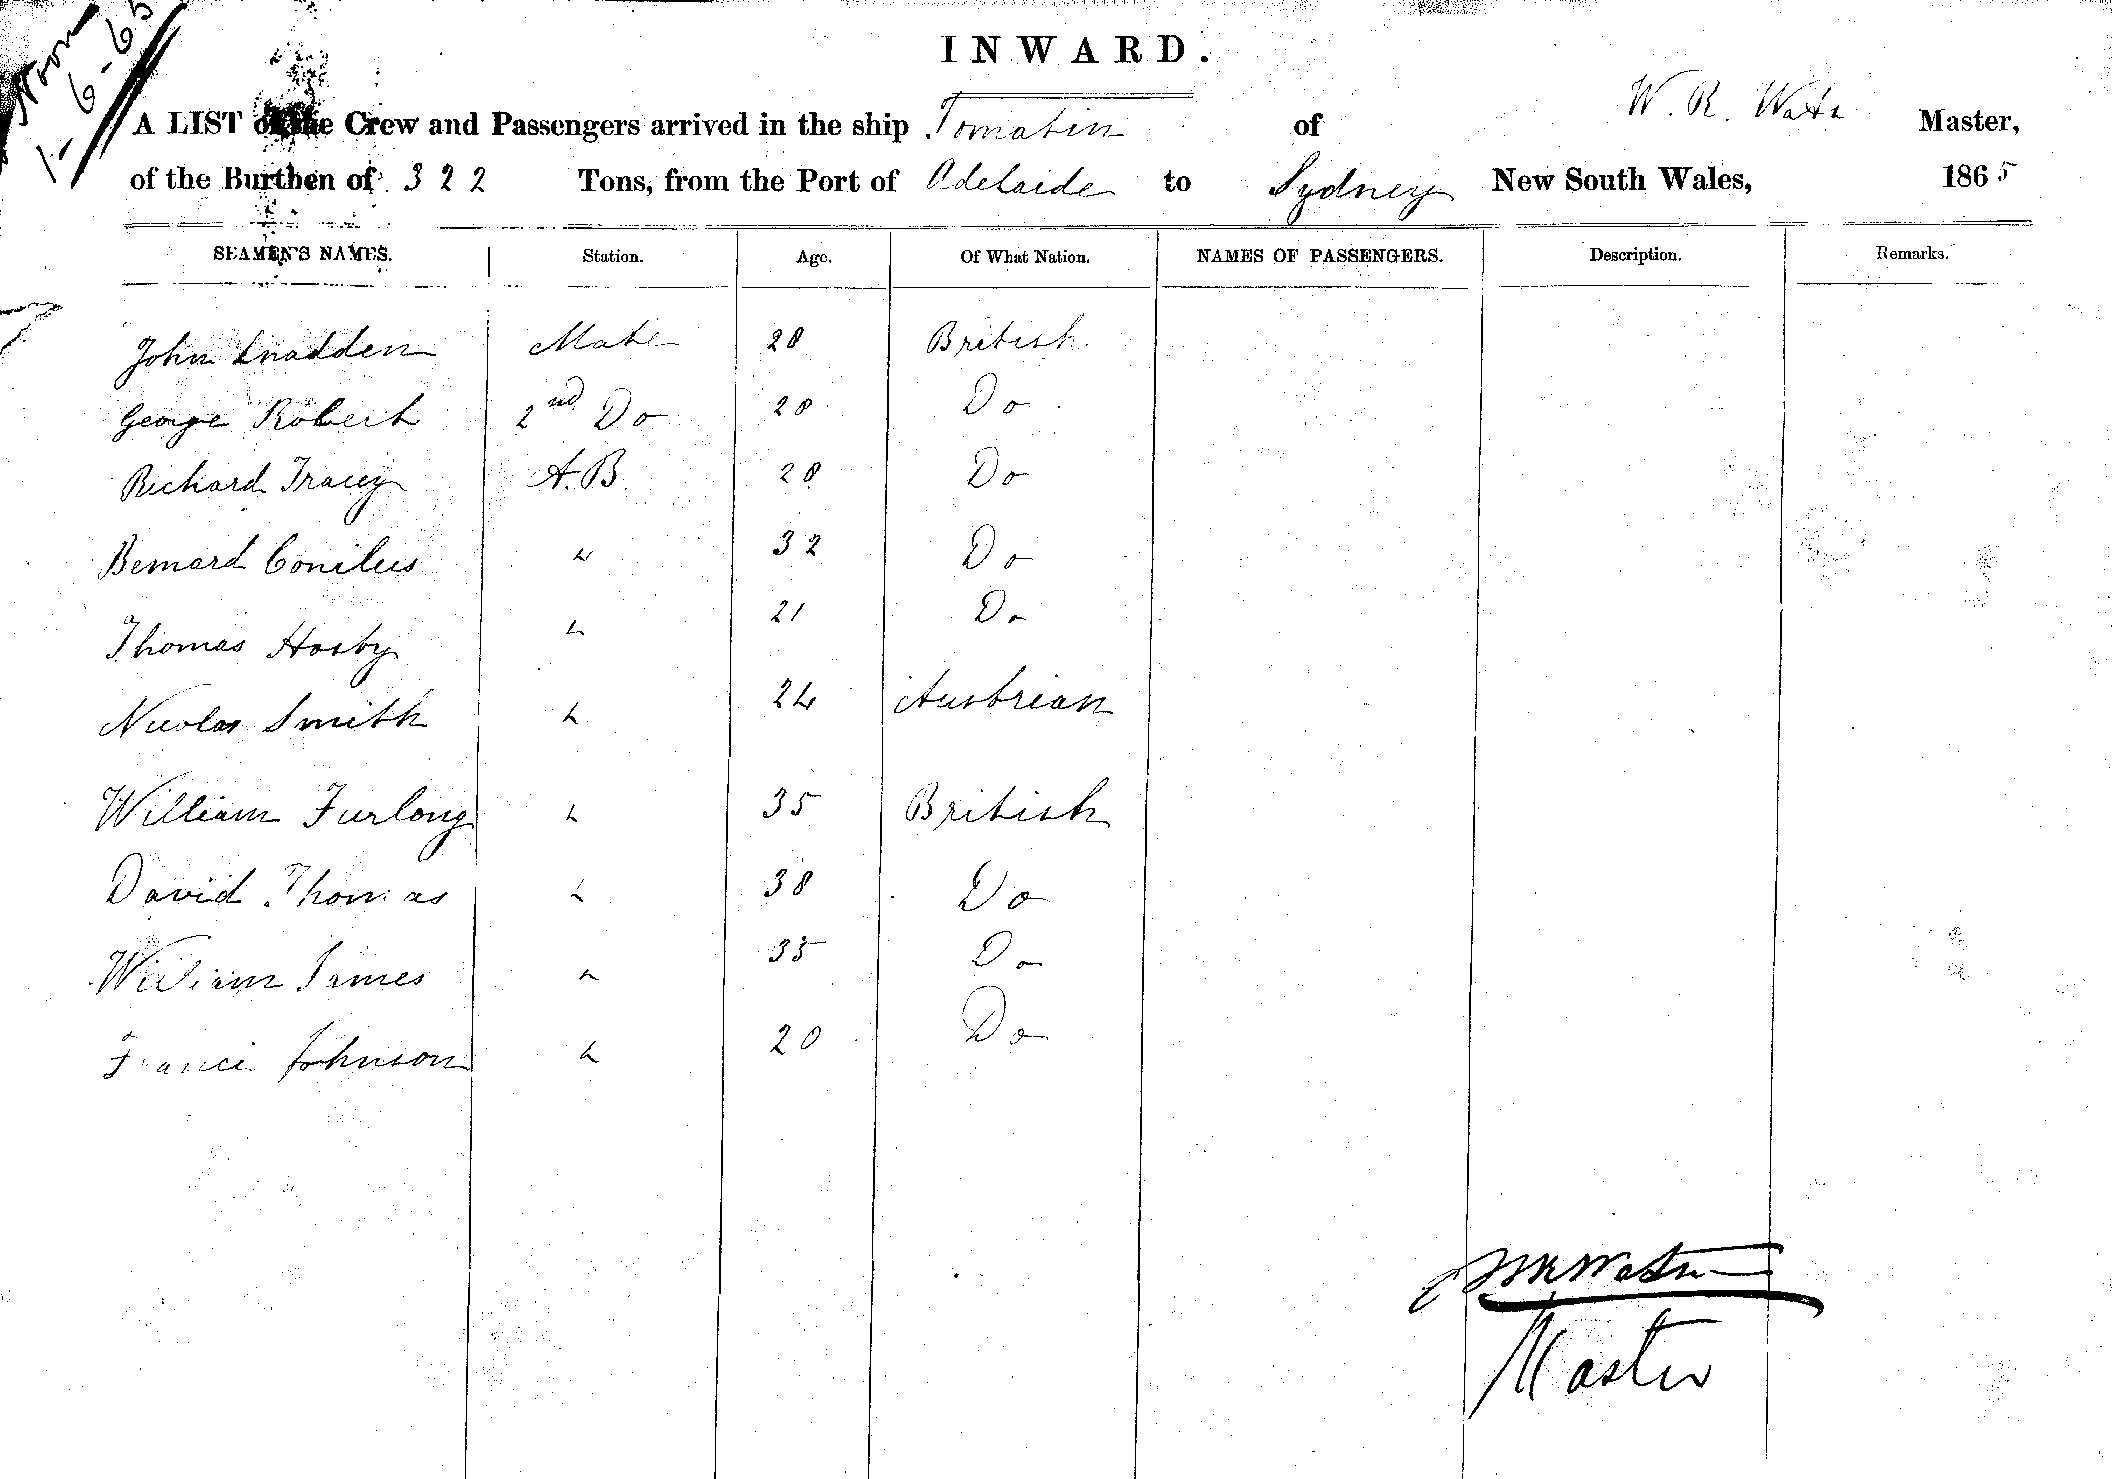 Noon
1-6-65
INWARD.
A LIST of the Crew and Passengers arrived in the ship Tomatin of W. R. Watn Master,
of the Burthen of 322 Tons, from the Port of Adelaide to Sydney New South Wales, 1865
SEAMEN'S NAMES. Station. Age. Of What Nation. NAMES OF PASSENGERS. Description. Remarks.
John Snadden Mate 28 British
George Robert 2nd Do 20 Do
Richard Tracey A.B. 28 Do
Bernard " 32 Do
Thomas Hosby " 21 Do
Nicolas Smith " 24 Austrian
William Furlong " 35 British
David Thomas " 38 Do
William James " 35 Do
Francis Johnson " 20 Do
Master